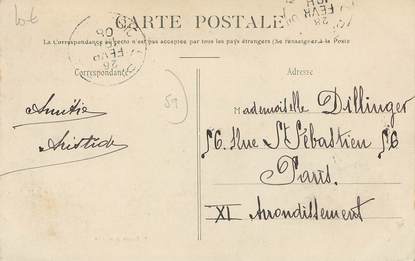 10 €
CARTE POSTALE
La Correspondance au recto n'est pas acceptée par tous les pays étrangers (Se renseigner à la Poste
Correspondance
Adresse
26
FEVR
06
28
FEVR
59
Amitié
Aristide
Mademoiselle Dillinger
56. Rue St Sébastien 56
Paris.
XI Arrondissement